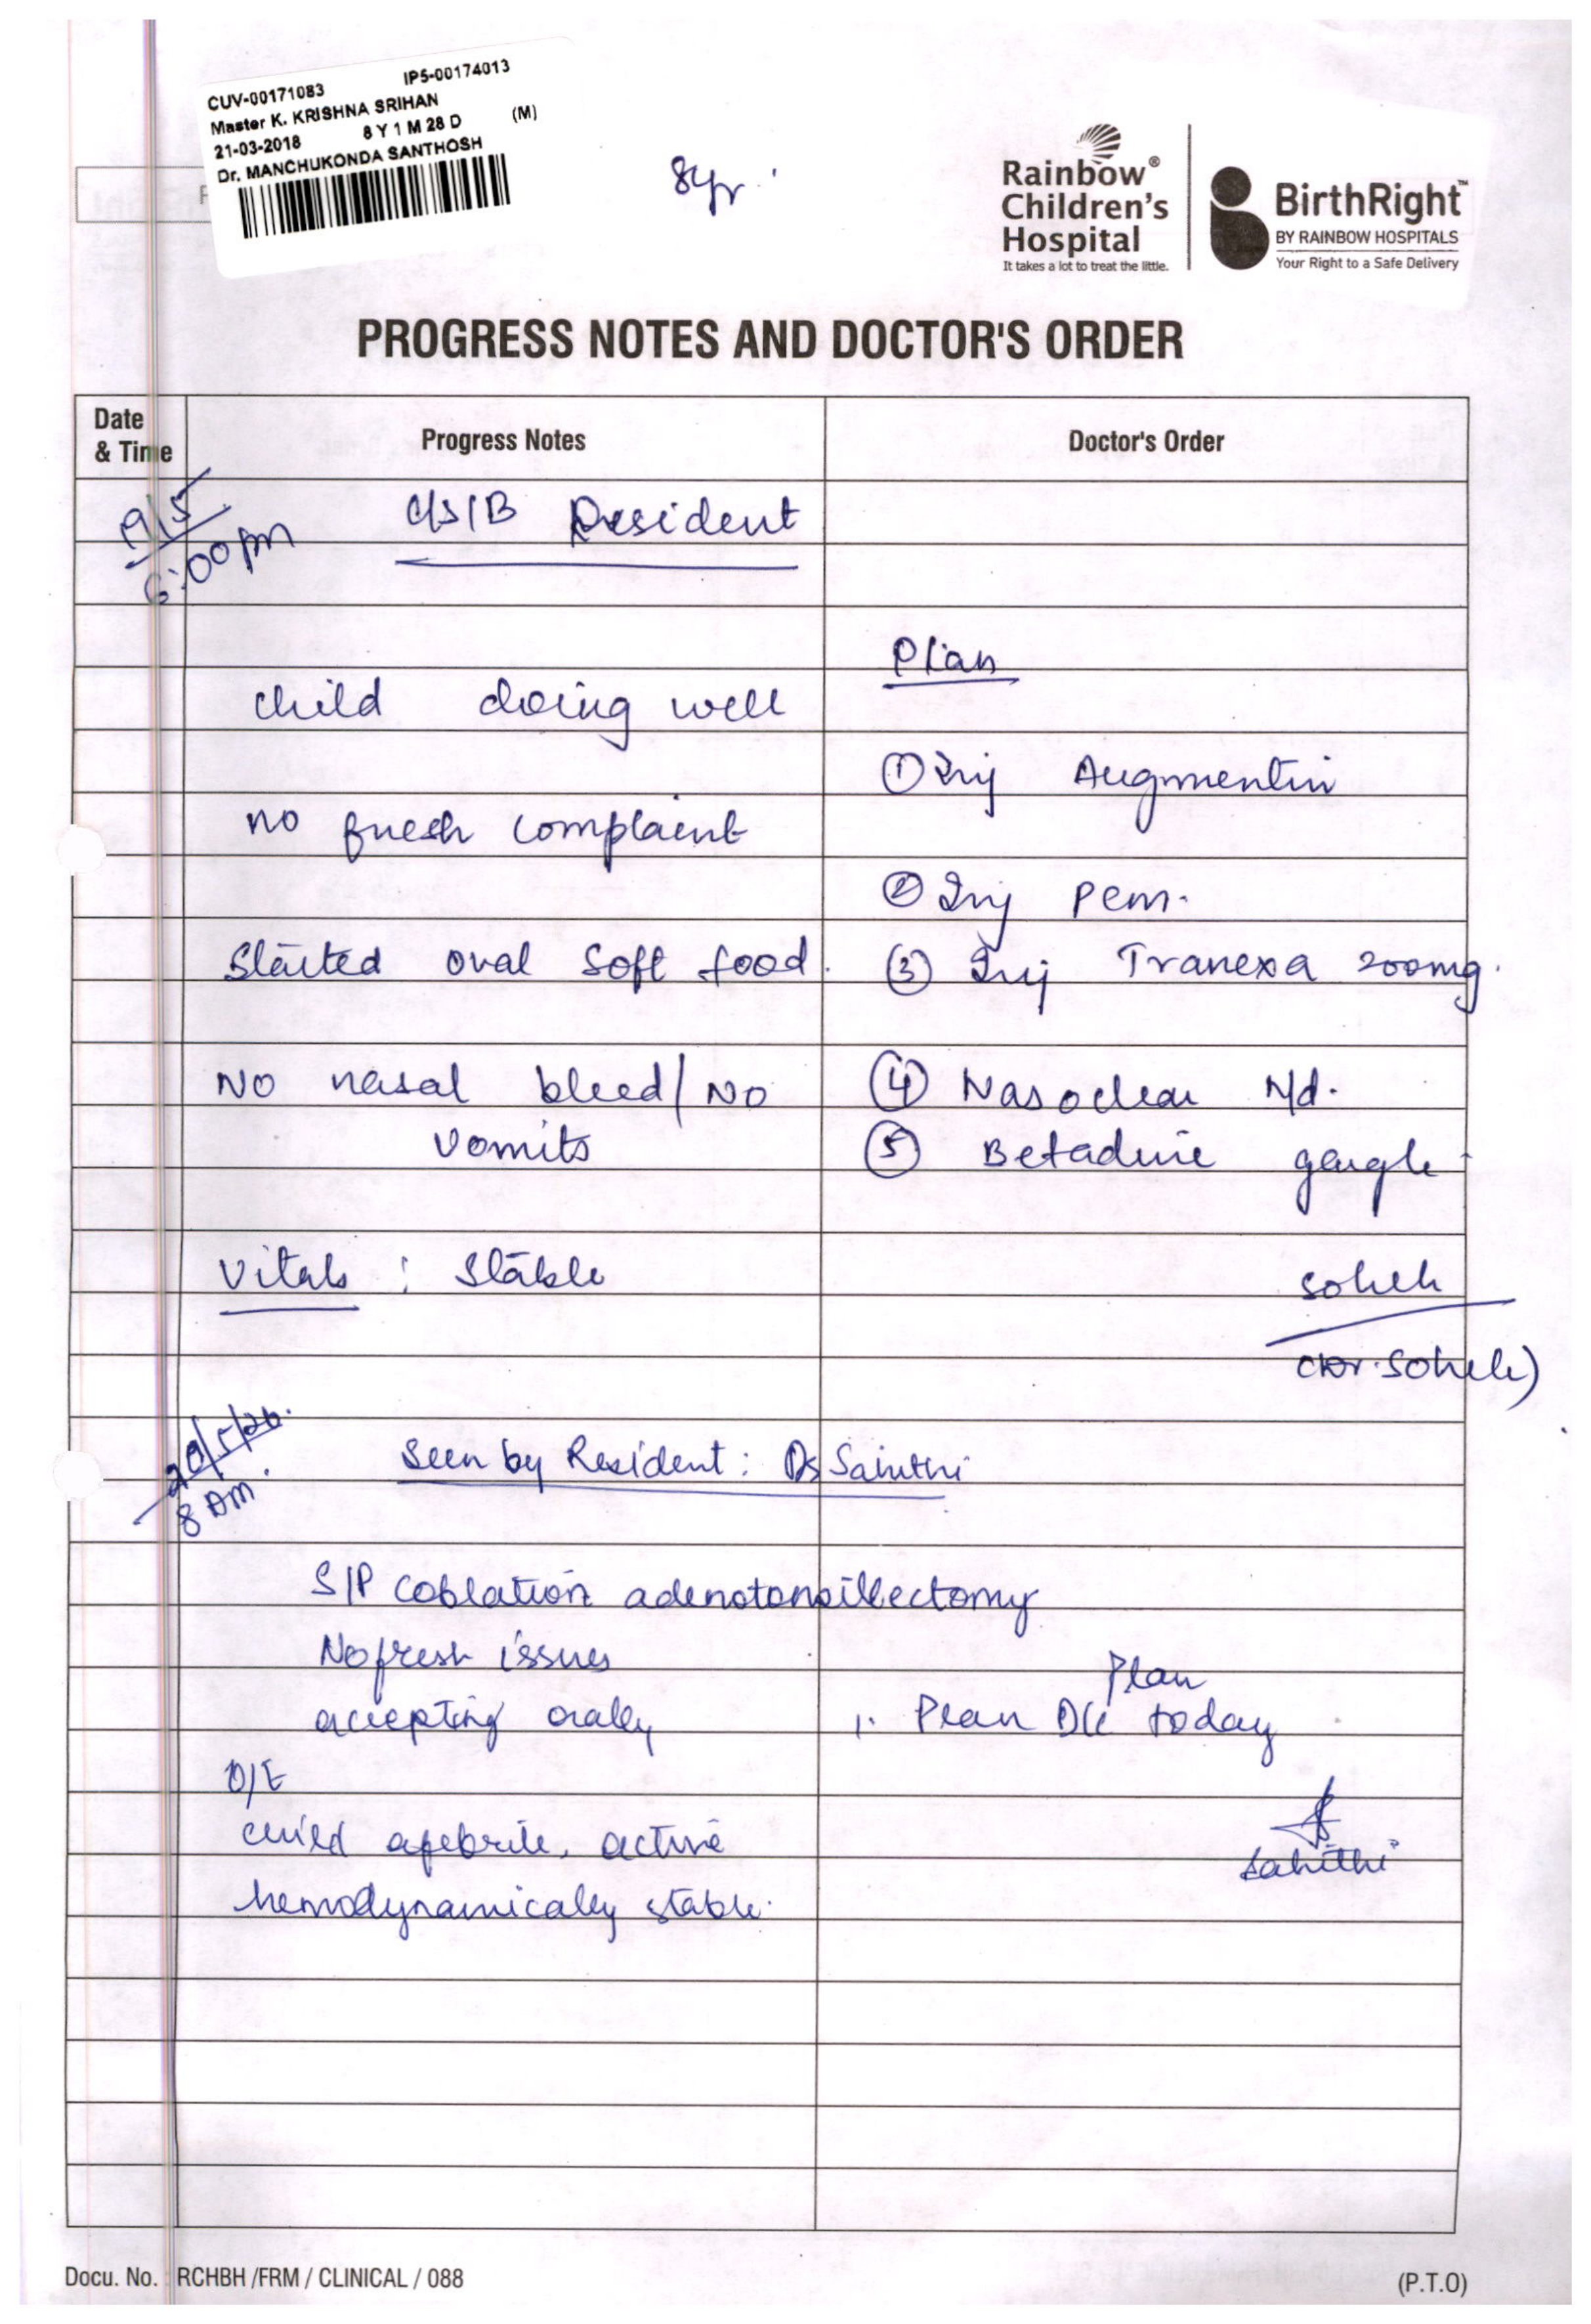 CUV-00171083 IP5-00174013
Master K. KRISHNA SRIHAN
21-03-2018 8 Y 1 M 28 D (M)
Dr. MANCHUKONDA SANTHOSH
8yr.
Rainbow®
Children's
Hospital
It takes a lot to treat the little.
BirthRight™
BY RAINBOW HOSPITALS
Your Right to a Safe Delivery
PROGRESS NOTES AND DOCTOR'S ORDER
Date & Time Progress Notes Doctor's Order
19/5 C/S/B Resident
6:00pm
Plan
child doing well
① Inj Augmentin
no fresh complaint
② Inj Pcm.
Started oral soft food. ③ Inj Tranexa 200mg.
No nasal bleed/ No ④ Nasoclear N/d.
vomits ⑤ Betadine gargle
Vitals : Stable
Soheli
(Dr. Soheli)
20/5/26. Seen by Resident: Dr Sahithi
8 AM.
S/P coblation adenotonsillectomy
No fresh issues
Plan
accepting orally 1. Plan D/c today
O/E
child afebrile, active
Sahithi
hemodynamically stable.
Docu. No. RCHBH /FRM / CLINICAL / 088
(P.T.O)